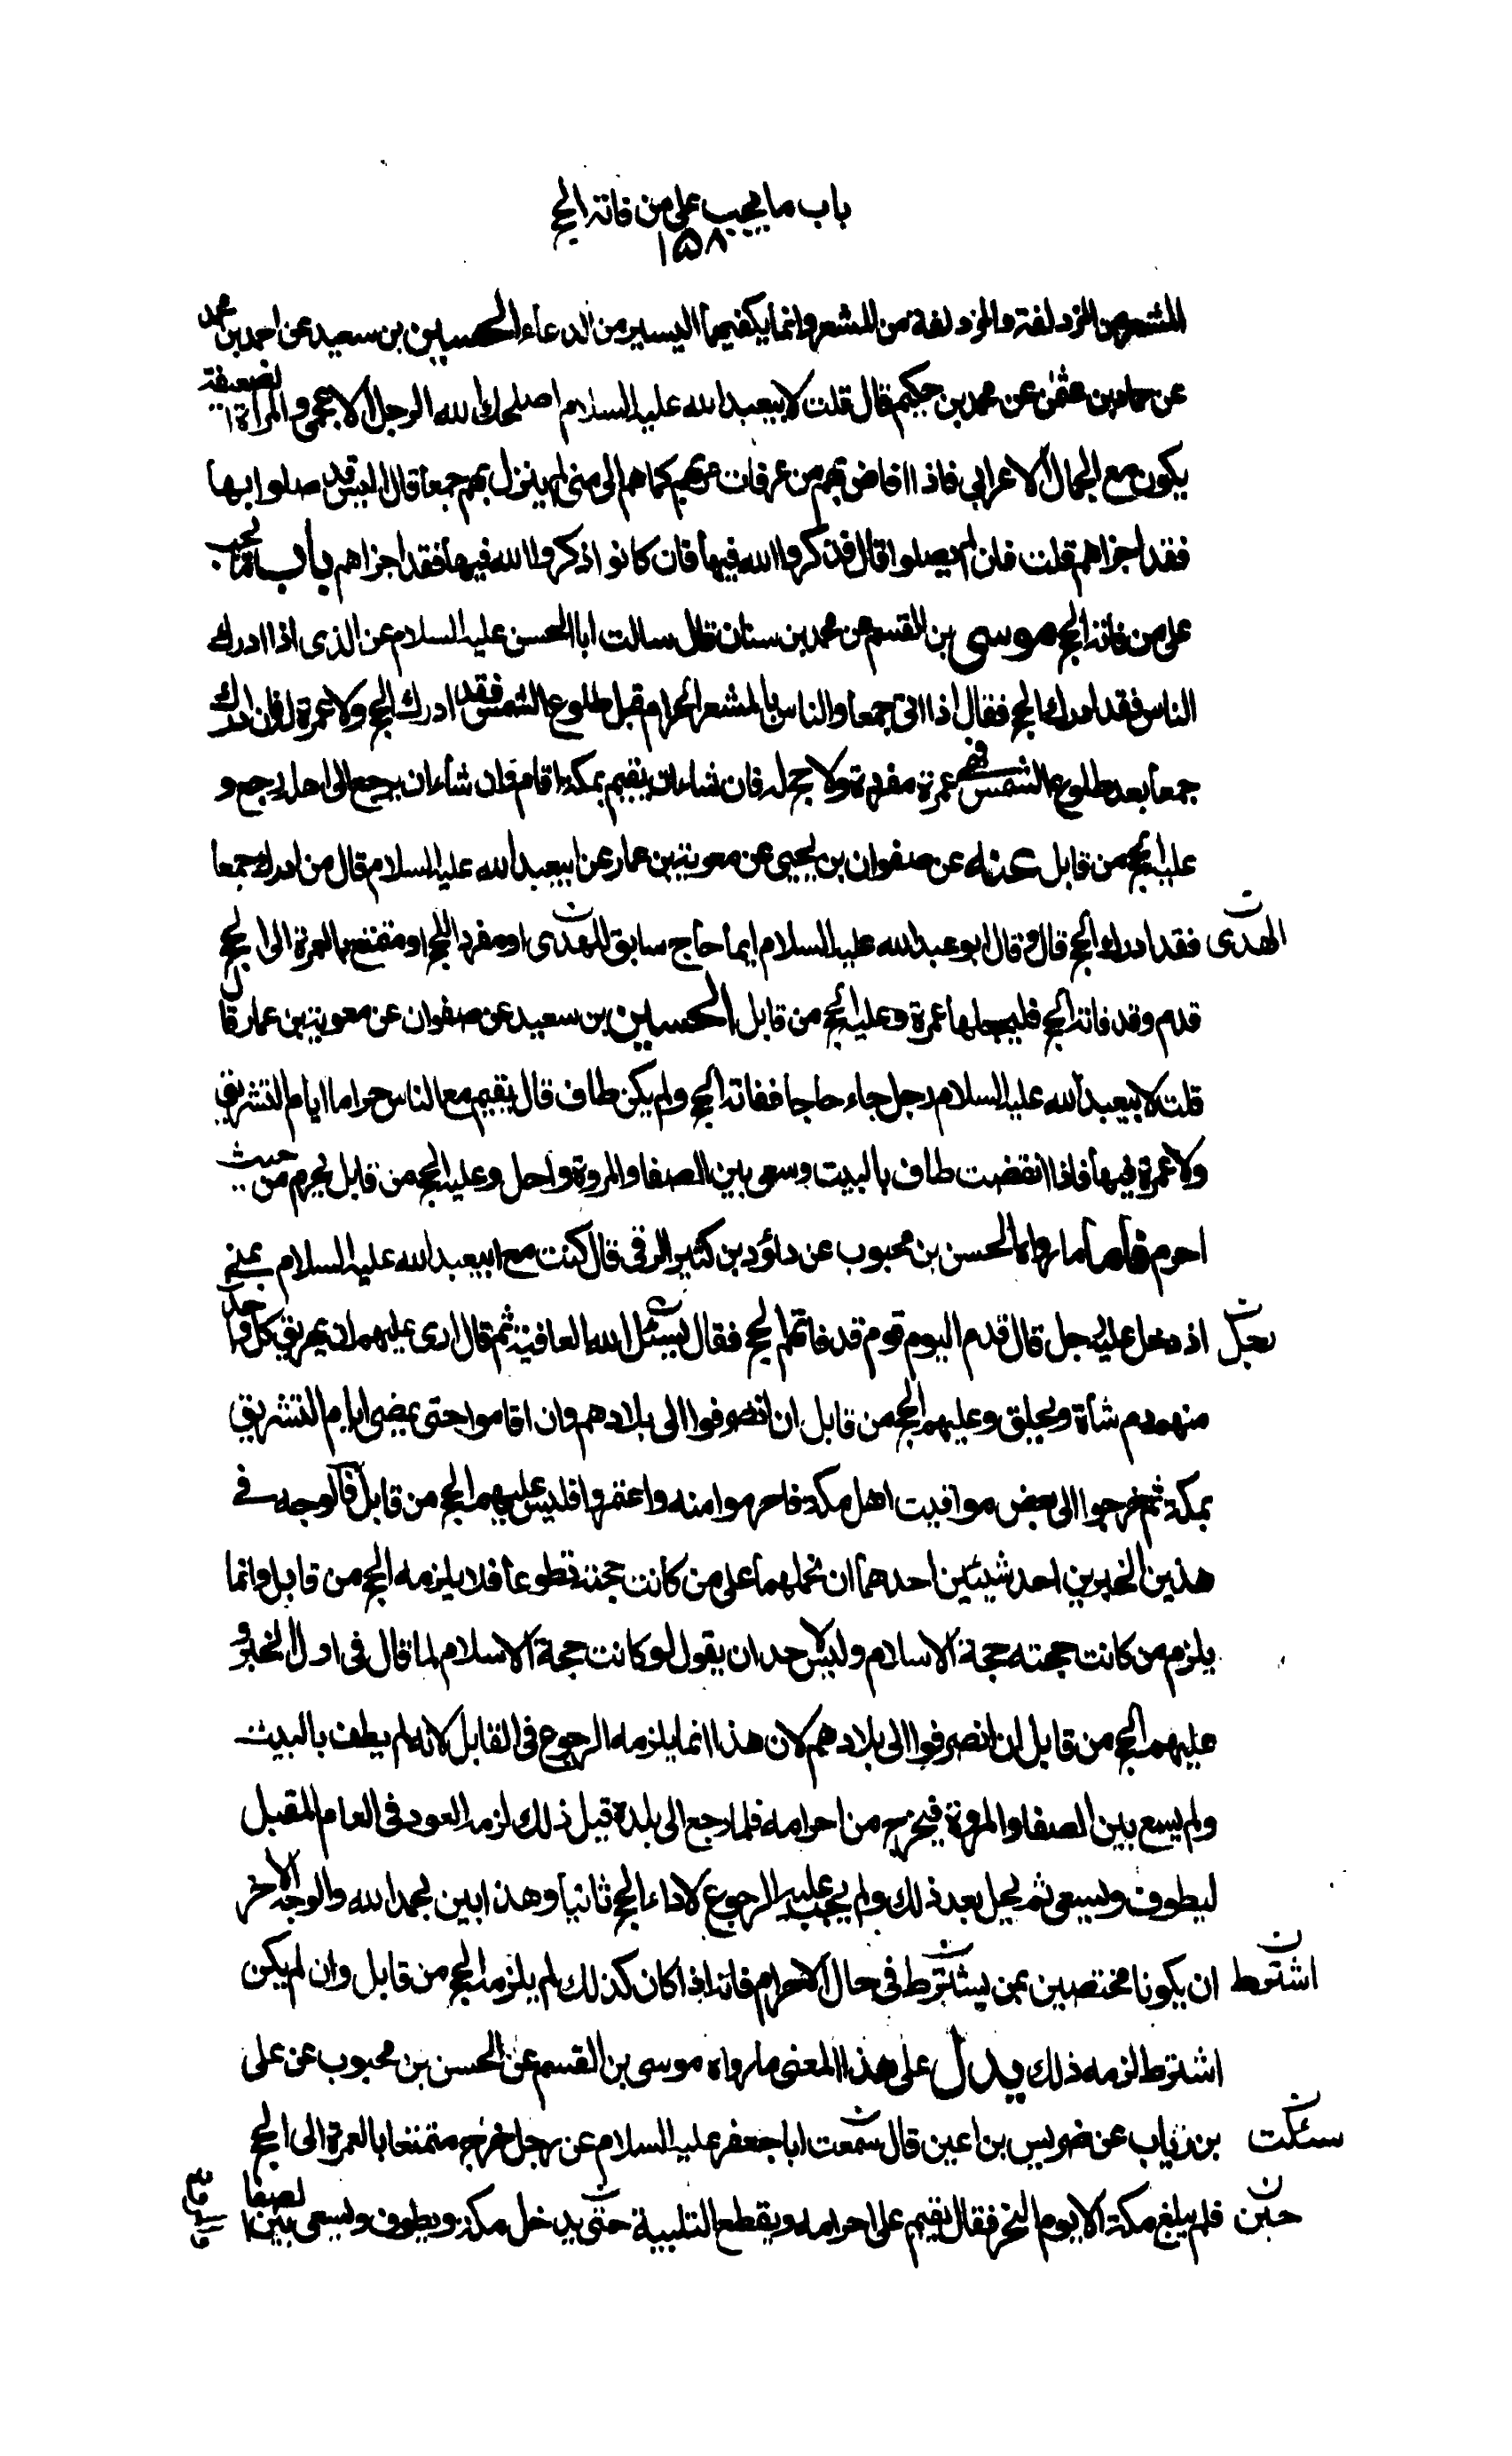 باب ما يجب على من فاته الحج
١٥٨
المشعر من المزدلفة والمزدلفة من المشعر وانما يكفيهما اليسير من الدعاء الحسين بن سعيد عن احمد بن محمد
عن حماد بن عثمن عن محمد بن حكيم قال قلت لابيعبد الله عليه السلام اصلحك الله الرجل الاعجمى والمرأة الضعيفة
يكون مع الجمال الاعرابى فاذا افاض بهم من عرفات مر بهم كما هم الى منى لم ينزل بهم جمعا قال اليس قد صلوا بها
فقد اجزاهم قلت فان لم يصلوا قال فذكروا الله فيها فان كانوا ذكروا الله فيها فقد اجزاهم باب ما يجب
على من فاته الحج موسى بن القسم عن محمد بن سنان قال سالت ابا الحسن عليه السلام عن الذى اذا ادرك
الناس فقد ادرك الحج فقال اذا اتى جمعا والناس بالمشعر الحرام قبل طلوع الشمس فقد ادرك الحج ولا عمرة له فان ادرك
جمعا بعد طلوع الشمس فهى عمرة مفردة ولا حج له فان شاء ان يقيم بمكة اقام وان شاء ان يرجع الى اهله رجع و
عليه الحج من قابل عنه عن صفوان بن يحيى عن معوية بن عمار عن ابيعبد الله عليه السلام قال من ادرك جمعا
فقد ادرك الحج قال وقال ابو عبد الله عليه السلام ايما حاج سابق للهدى او مفرد للحج او متمتع بالعمرة الى الحج
الهدى ن
قدم وقد فاته الحج فليجعلها عمرة وعليه الحج من قابل الحسين بن سعيد عن صفوان عن معوية بن عمار قال
قلت لابيعبد الله عليه السلام رجل جاء حاجا ففاته الحج ولم يكن طاف قال يقيم مع الناس حراما ايام التشريق
ولا عمرة فيها فاذا انقضت طاف بالبيت وسعى بين الصفا والمروة واحل وعليه الحج من قابل يحرم من حيث
احرم فاما ما رواه الحسن بن محبوب عن داؤد بن كثير الرقى قال كنت مع ابيعبد الله عليه السلام بمنى
اذ دخل عليه رجل قال قدم اليوم قوم قد فاتهم الحج فقال نسئل الله العافية ثم قال ارى عليهم ان يهريق كل واحد
رجل ن
منهم دم شاة ويحلق وعليهم الحج من قابل ان انصرفوا الى بلادهم وان اقاموا حتى يمضى ايام التشريق
بمكة ثم خرجوا الى بعض مواقيت اهل مكة فاحرموا منه واعتمروا فليس عليهم الحج من قابل فالوجه فى
هذين الخبرين احد شيئين احدهما ان نحملهما على من كانت حجته تطوعا فلا يلزمه الحج من قابل وانما
يلزم من كانت حجته حجة الاسلام وليس لاحد ان يقول لو كانت حجة الاسلام لما قال فى اول الخبر و
عليهم الحج من قابل ان انصرفوا الى بلادهم لان هذا انما يلزمه الرجوع فى القابل لانه لم يطف بالبيت
ولم يسع بين الصفا والمروة فيخرج من احرامه فلما رجع الى بلده قبل ذلك لزمه العود فى العام المقبل
ليطوف ويسعى ثم يحل بعد ذلك ولم يجب عليه الرجوع لاداء الحج ثانيا وهذا بين بحمد الله والوجه الاخر
ان يكونا مختصين بمن يشترط فى حال الاحرام فانه اذا كان كذلك لم يلزمه الحج من قابل وان لم يكن
اشترط ن
اشترط لزمه ذلك يدل على هذا المعنى ما رواه موسى بن القسم عن الحسن بن محبوب عن على
بن رئاب عن ضريس بن اعين قال سمعت ابا جعفر عليه السلام عن رجل خرج متمتعا بالعمرة الى الحج
سئلت ن
فلم يبلغ مكة الا يوم النحر فقال يقيم على احرامه ويقطع التلبية حتى يدخل مكة ويطوف ويسعى بين الصفا
حين ن